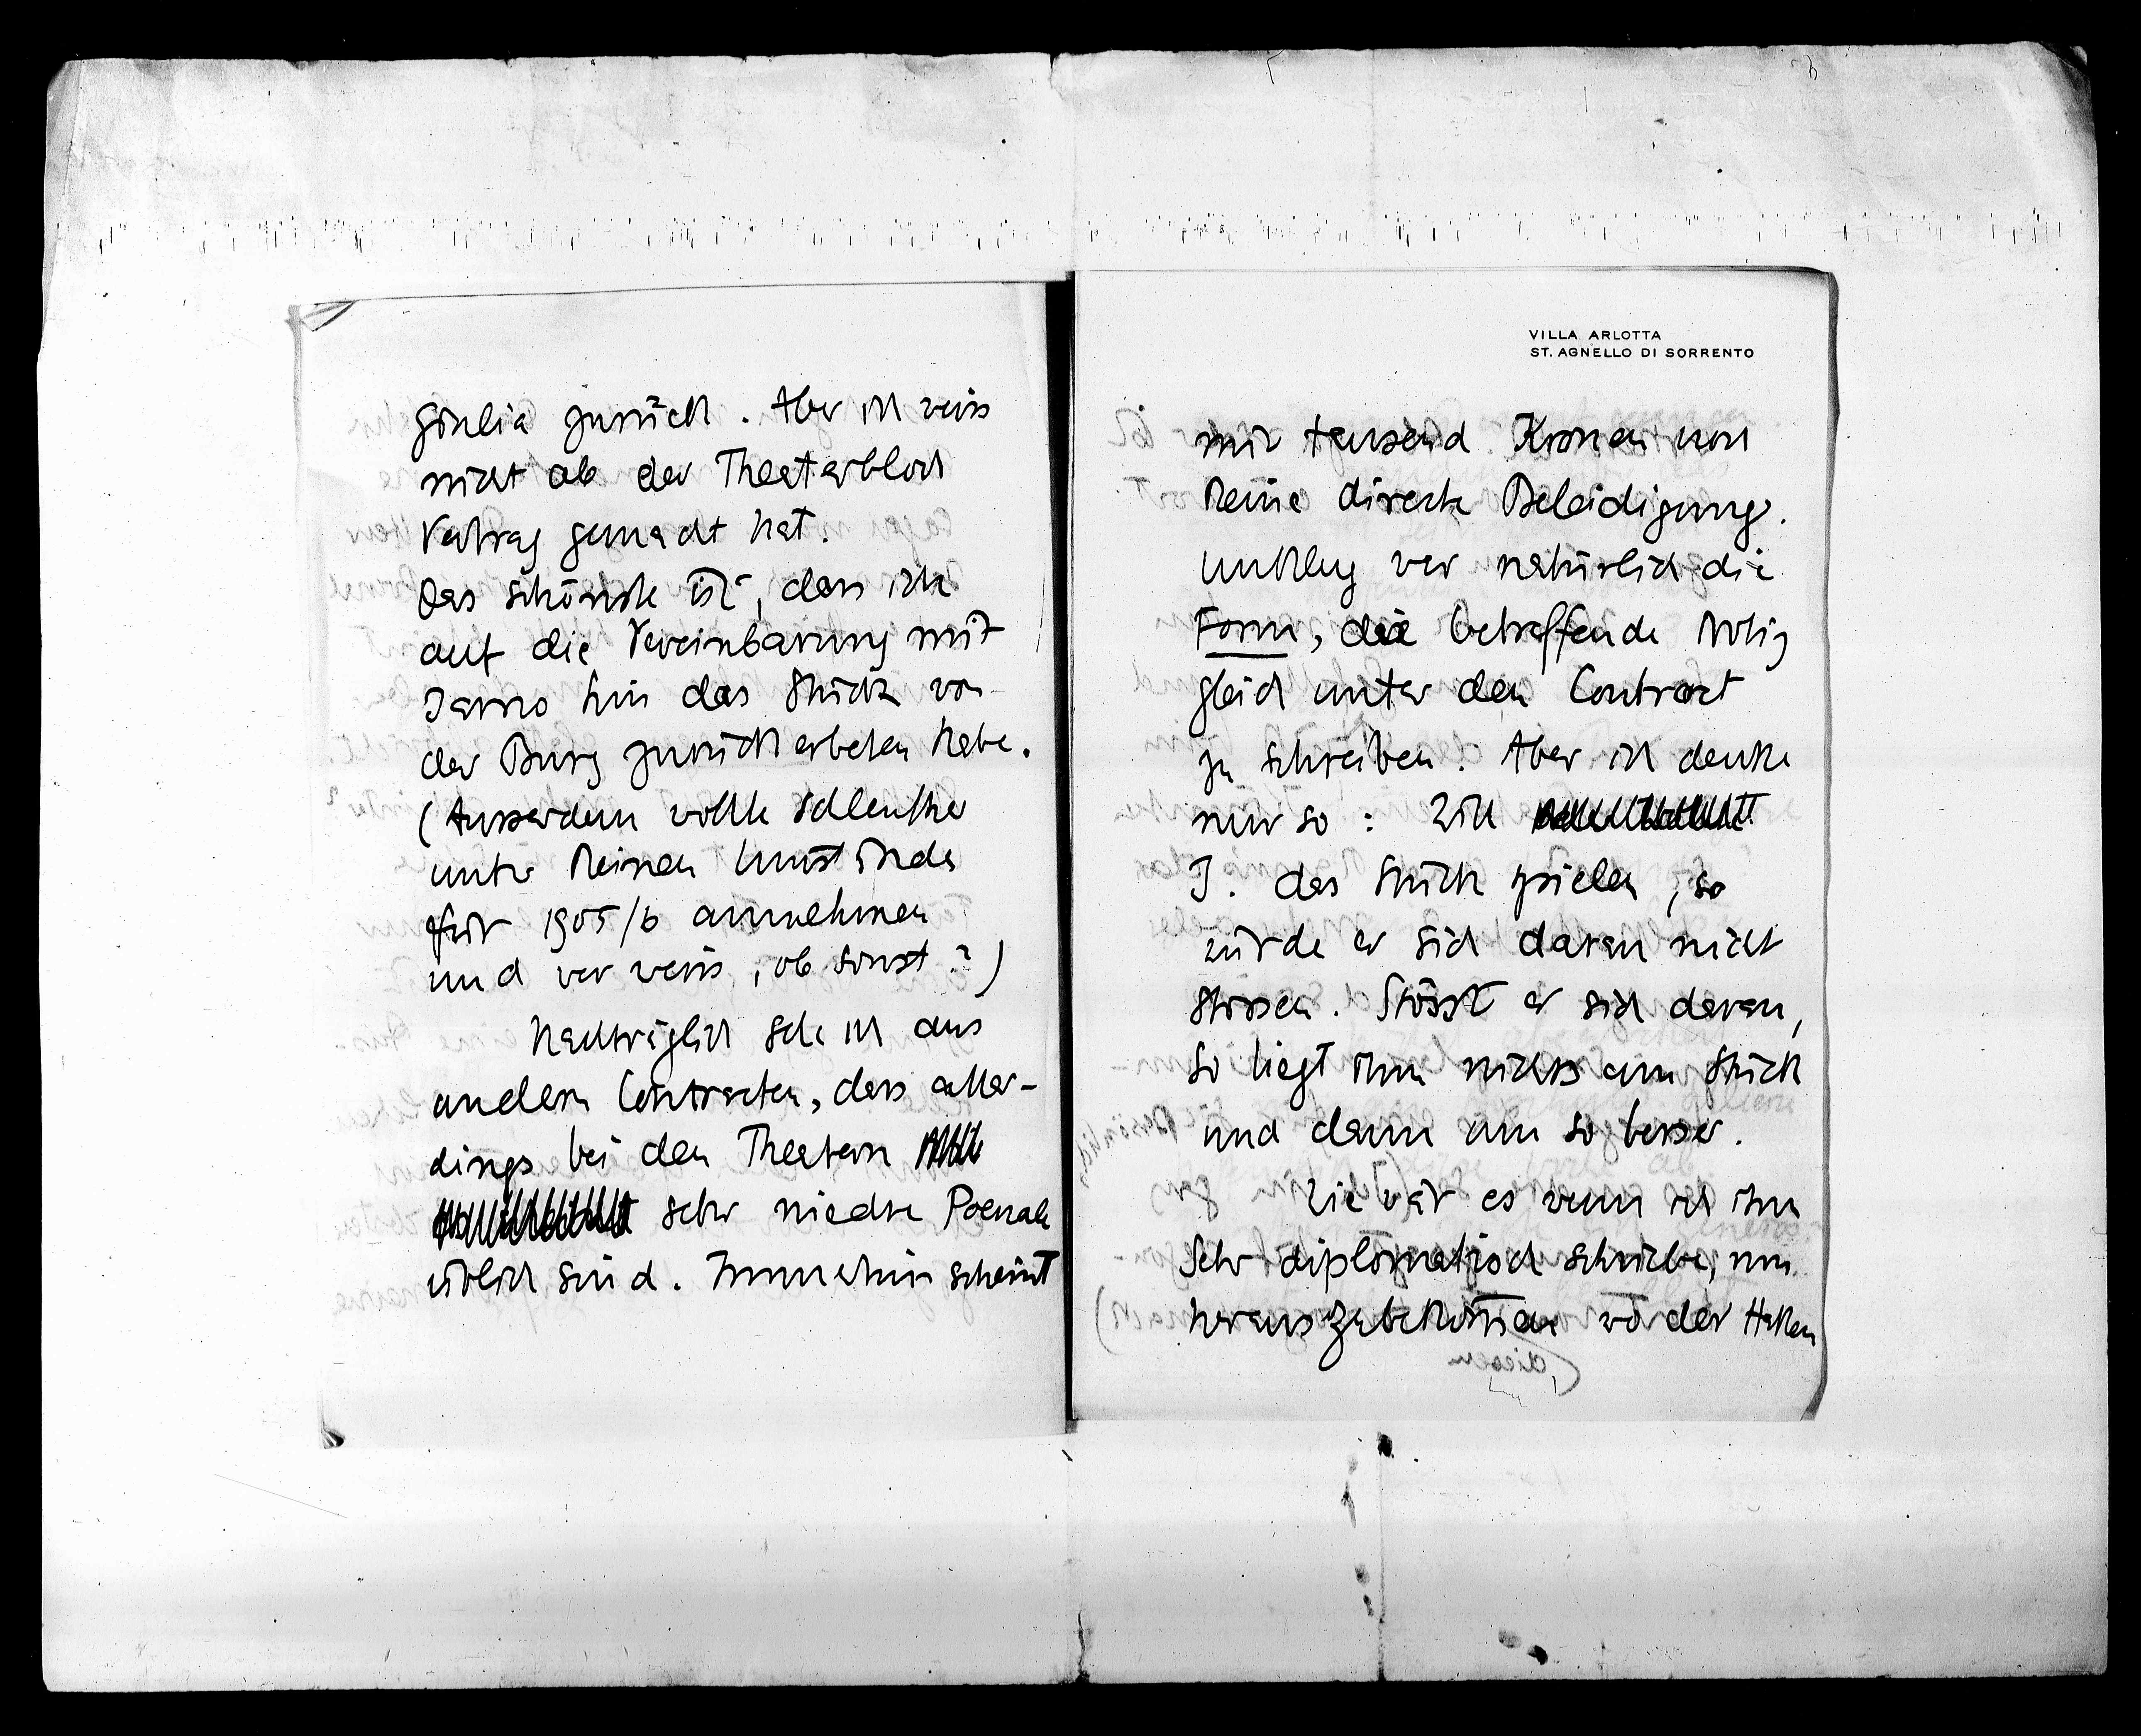 Giulia zurück. Aber ich weiss
nicht ob der Theaterblock
Vertrag gemacht hat.
Das schönste ist, dass ich
auf die Vereinbarung mit
Jarno hin das Stück von
der Burg zurückerbeten habe.
(Ausserdem wollte Schlenther
unter keinen Umständen
für 1905/6 annehmen
und wer weiss, ob sonst?)
Nachträglich sehe ich aus
andern Contracten, dass aller-
dings bei den Theatern
sehr niedre Poenale
üblich sind. Immerhin scheint
VILLA ARLOTTA
ST. AGNELLO DI SORRENTO
mir tausend Kronen noch
keine directe Beleidigung.
Unklug war natürlich die
Form, die betreffende Notiz
gleich unter den Contract
zu schreiben. Aber ich denke
nur so: Will
J. das Stück spielen, so
würde er sich daran nicht
stossen. Stösst er sich daran,
so liegt ihm nichts am Stück
und dann um so besser.
Wie wär es wenn ich ihm
sehr diplomatisch schriebe, um
herauszubekommen wo der Haken